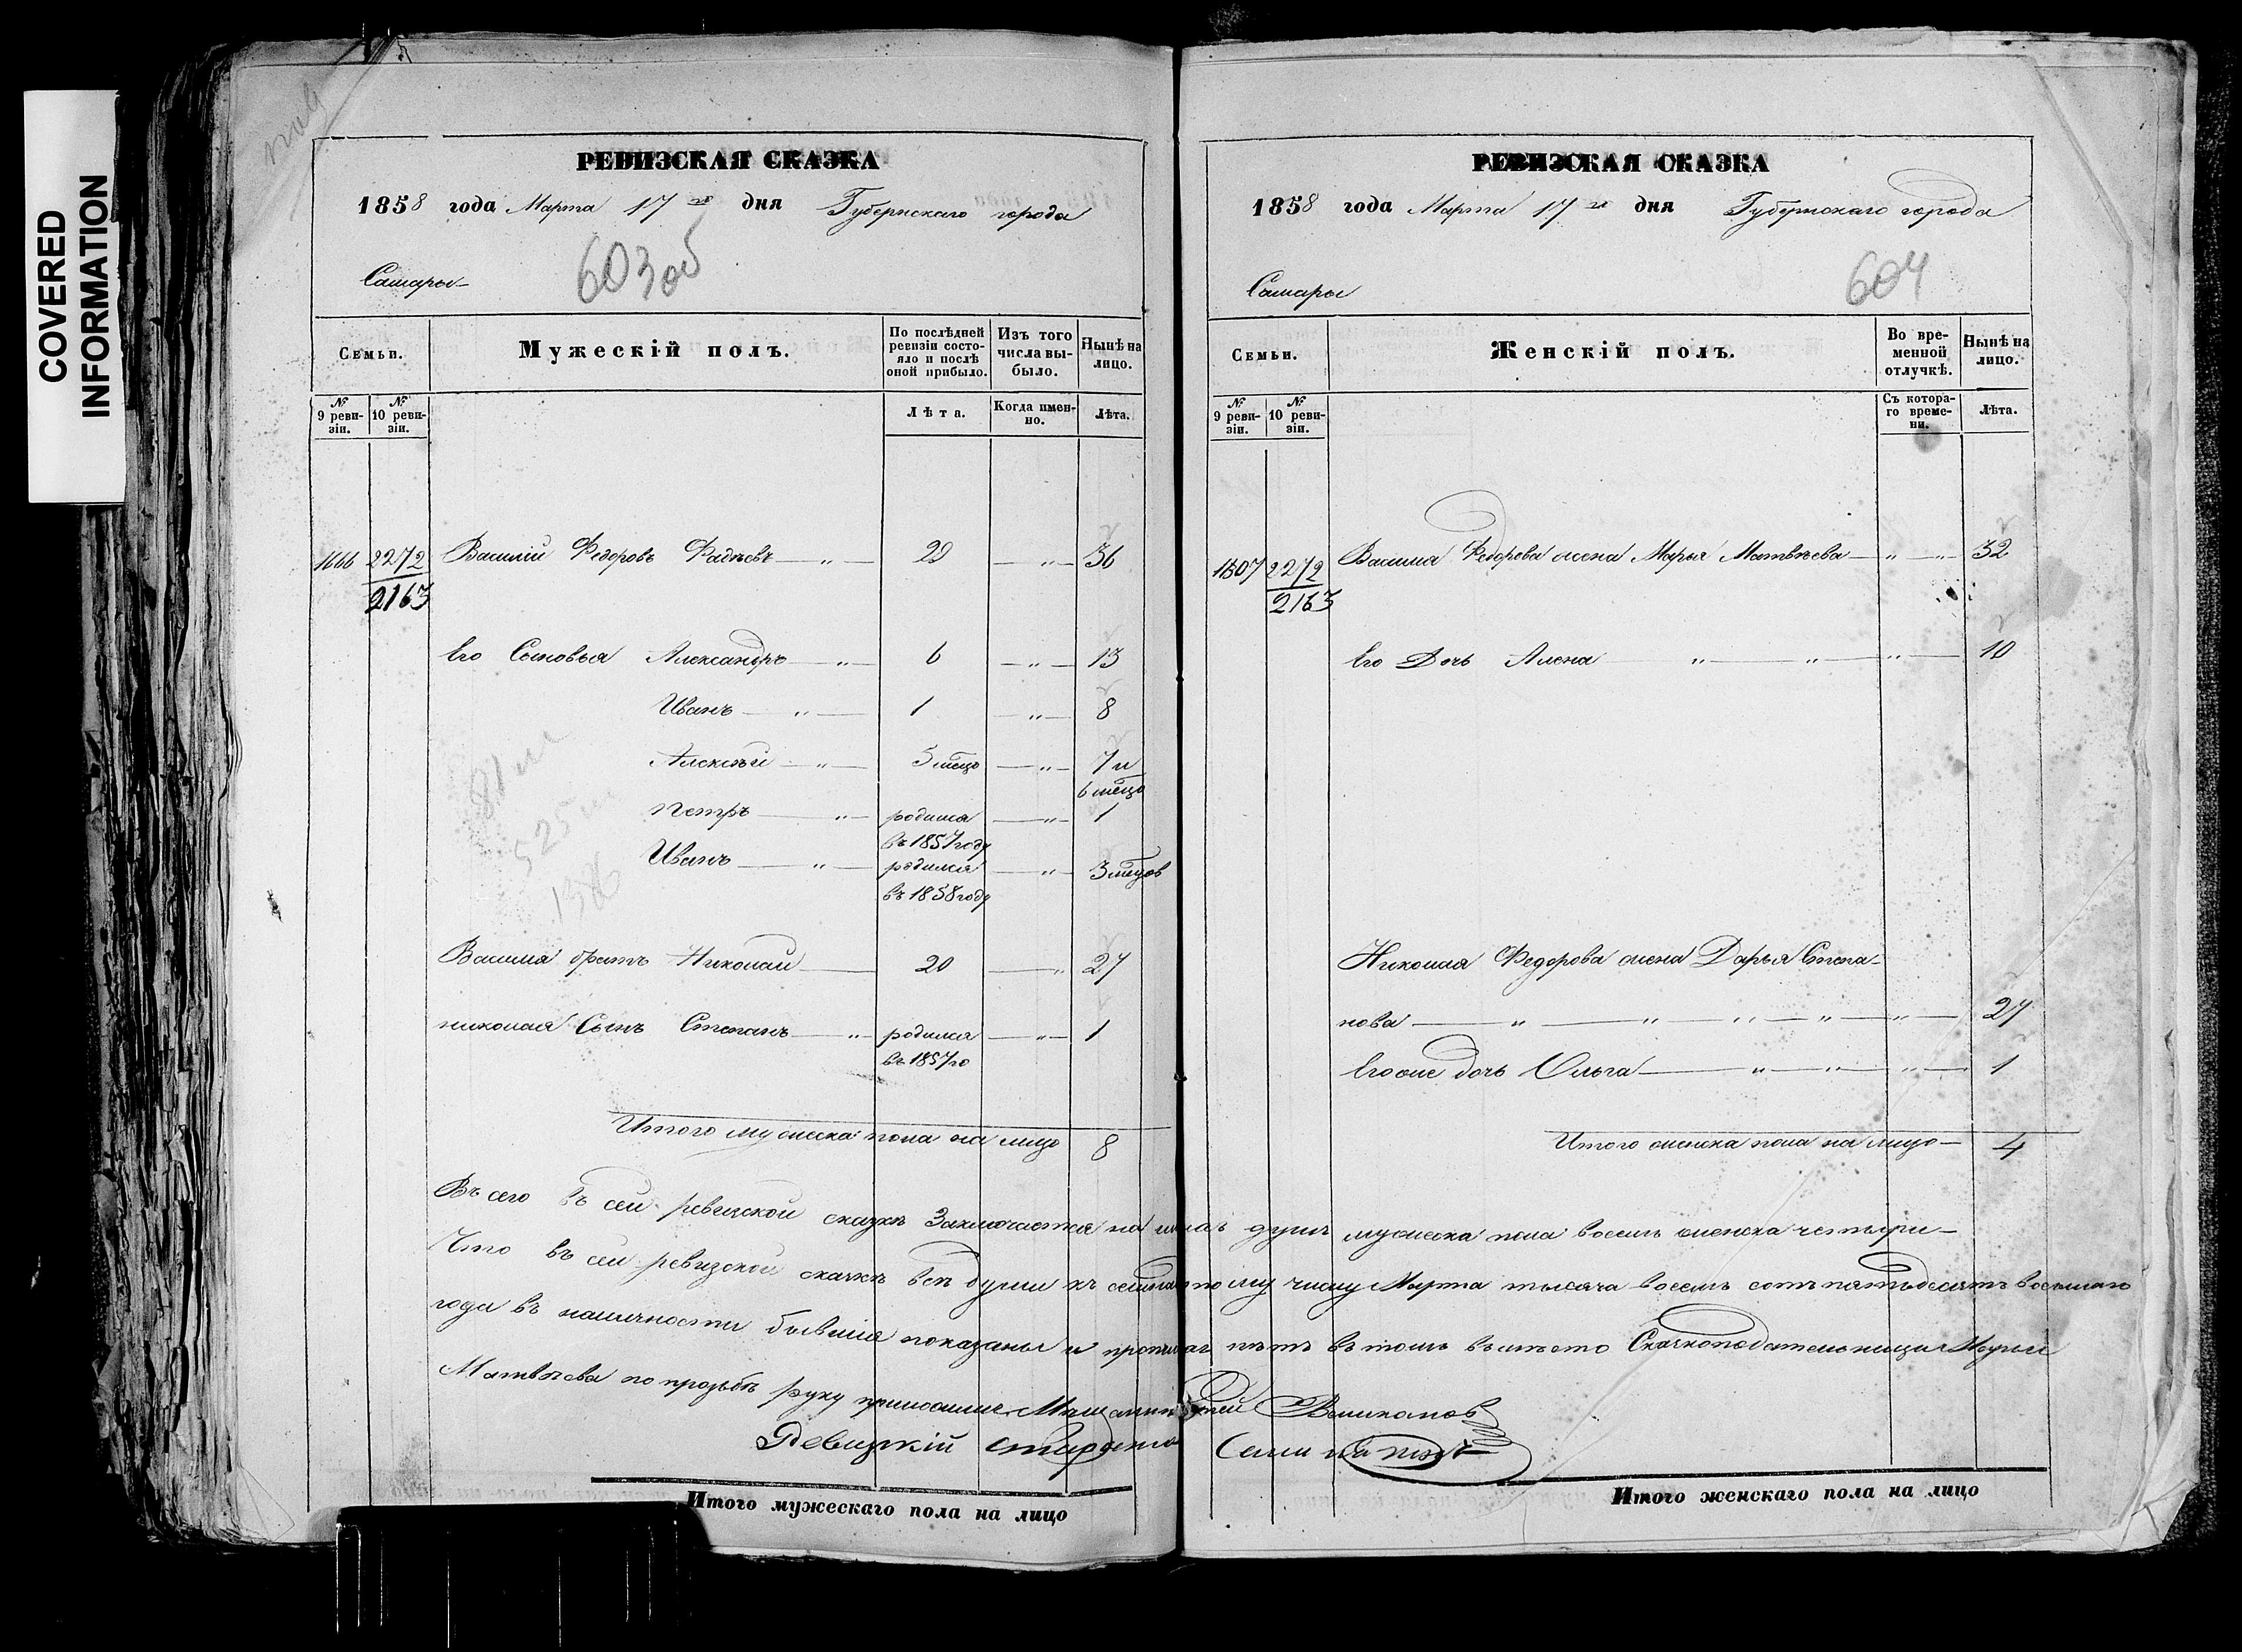 COVERED
INFORMATION
РЕВИЗСКАЯ СКАЗКА
1858 года Марта 17го дня Губернскаго города
603об
Самары
Семьи.
Мужескій полъ.
По послѣдней ревизіи состояло и послѣ оной прибыло.
Изъ того числа выбыло.
Нынѣ на лицо.
№ 9 ревизіи.
№ 10 ревизіи.
Лѣта.
Когда именно.
Лѣта.
1666 2272 Василій Федоровъ Фадѣевъ — „ — 29 — „ — 36
2163
Его Сыновья Александръ — „ — 6 — „ — 13
Иванъ — „ — 1 — „ — 8
Алексѣй — „ — 5 мецо — „ — 7 и
6 мецо
Петръ — „ — родился — „ — 1
въ 1857 году
Иванъ — „ — родился — „ — 3 мецов
въ 1858 году
Василия братъ Николай — 20 — „ 27
николая Сынъ Степанъ — „ — родился — „ — 1
въ 1857 го
Итого мужеска пола на лицо 8
РЕВИЗСКАЯ СКАЗКА
1858 года Марта 17го дня Губернскаго города
604
Самары
Семьи.
Женскій полъ.
Во временной отлучкѣ.
Нынѣ на лицо.
№ 9 ревизіи.
№ 10 ревизіи.
Съ котораго времени.
Лѣта.
1807 2272 Василия Федорова жена Марья Матвѣева — „ — „ — 32
2163
Его Дочь Алена — „ — „ — „ — 10
Николая Федорова жена Дарья Степа-
нова — „ — „ — „ — „ — „ — 27
Его же дочь Ольга — „ — „ — „ — 1
Итого женска пола на лицо — 4
Въ сего въ сей ревизской сказкѣ Заключается на лицо душъ мужеска пола восемь женска четыри —
Что въ сей ревизской скаскѣ всѣ души къ семнатцатому числу Марта тысяча восемь сотъ пятьдесятъ восьмаго
года въ наличности бывшия показаны и прописаных нѣтъ въ томъ вместо Скаскоподательницы Марьи
Матвѣева по прозьбѣ руку приложилъ Великановъ
Ревизкій староста
Итого мужескаго пола на лицо
Итого женскаго пола на лицо